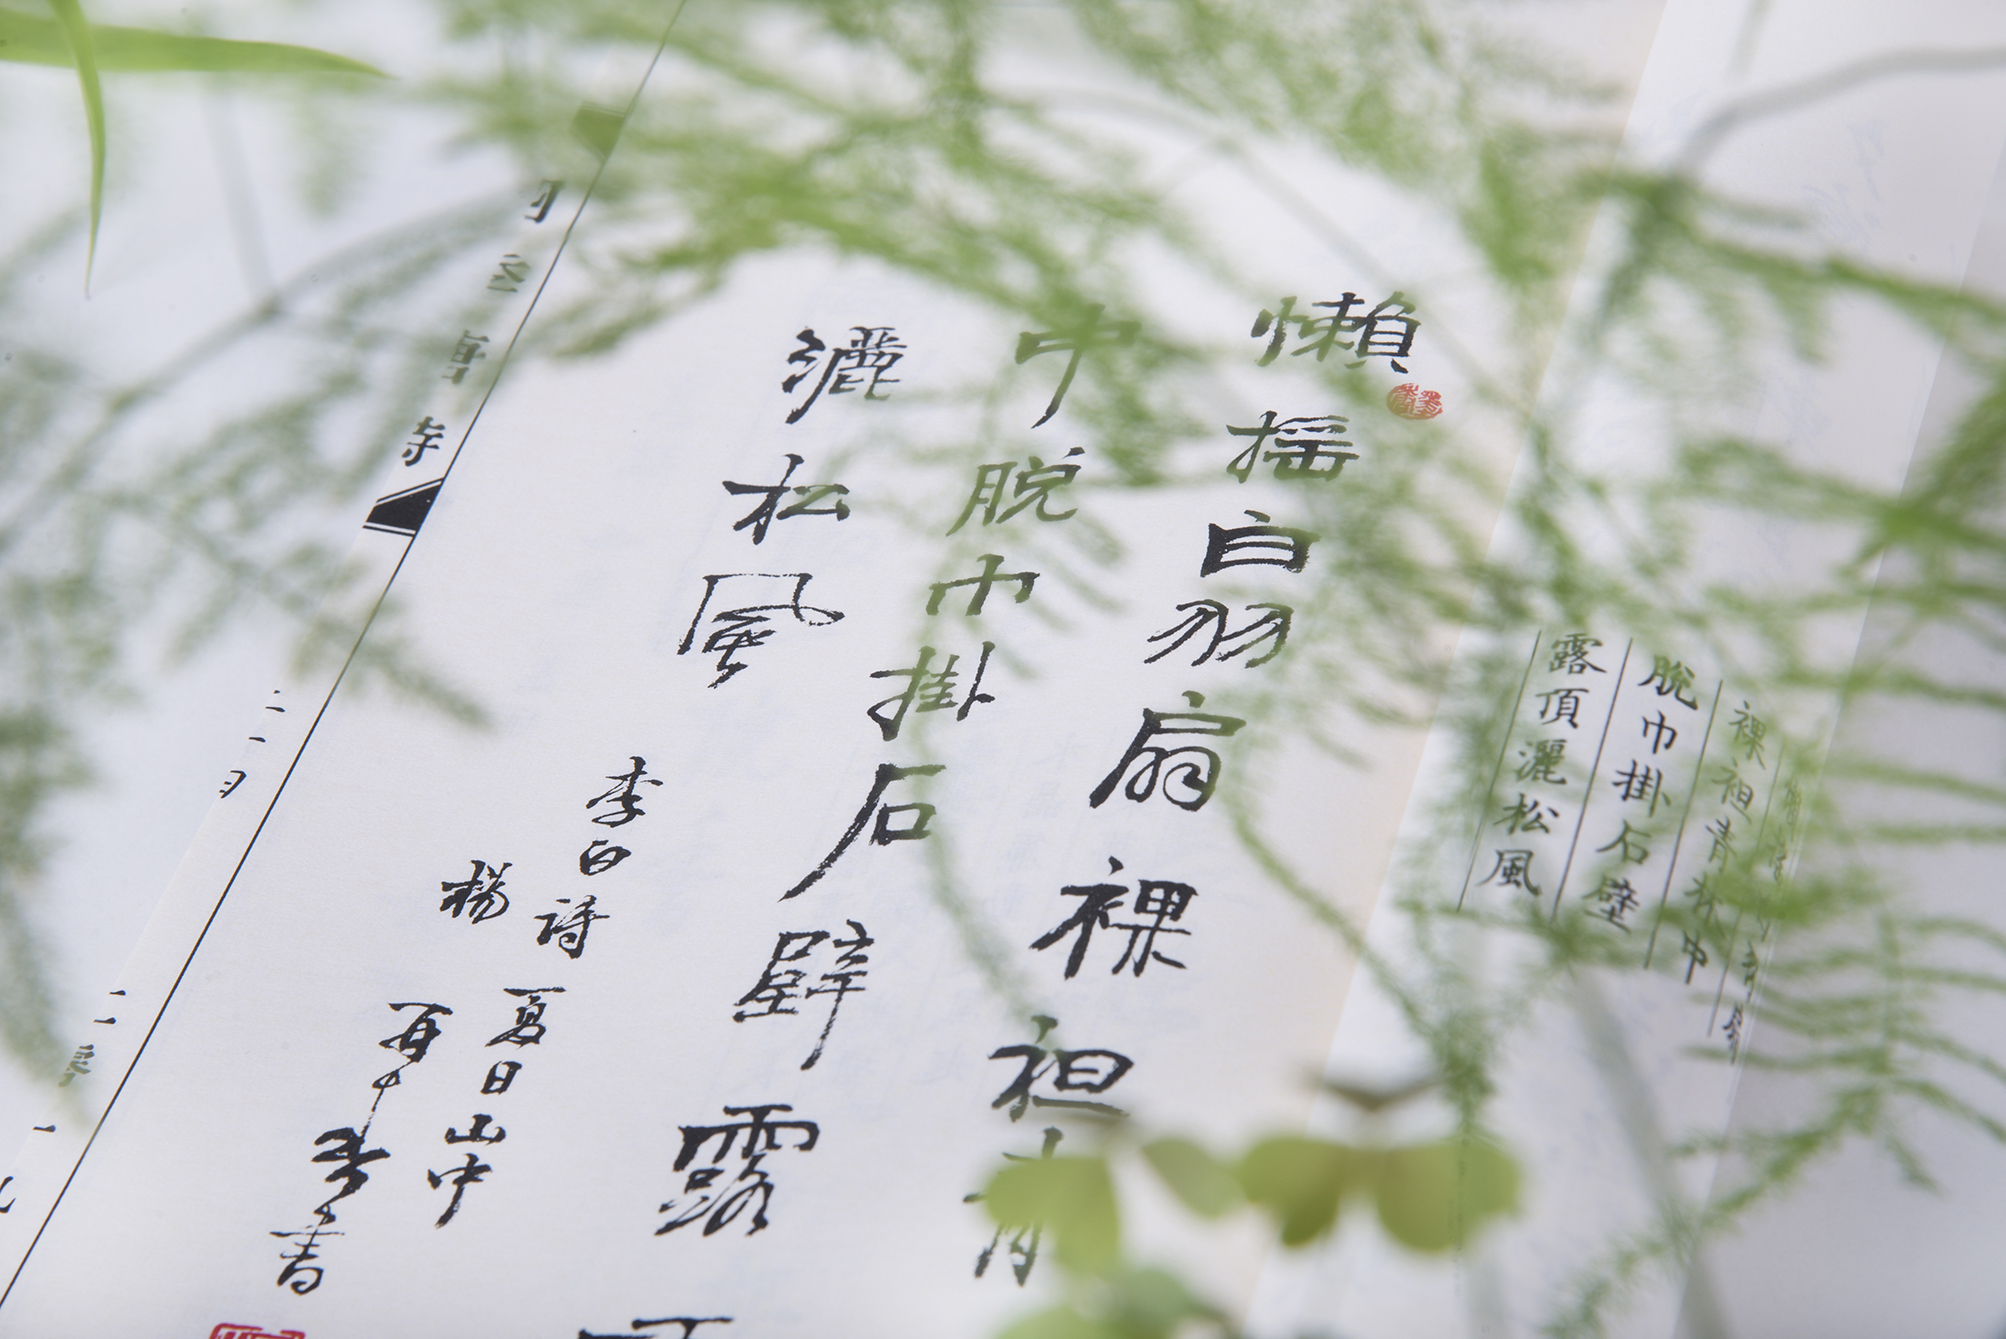 裸袒青林中
脫巾掛石壁
露頂灑松風
懶摇白羽扇裸袒青
中脫巾掛石壁露
灑松風
李白詩夏日山中
楊再春書